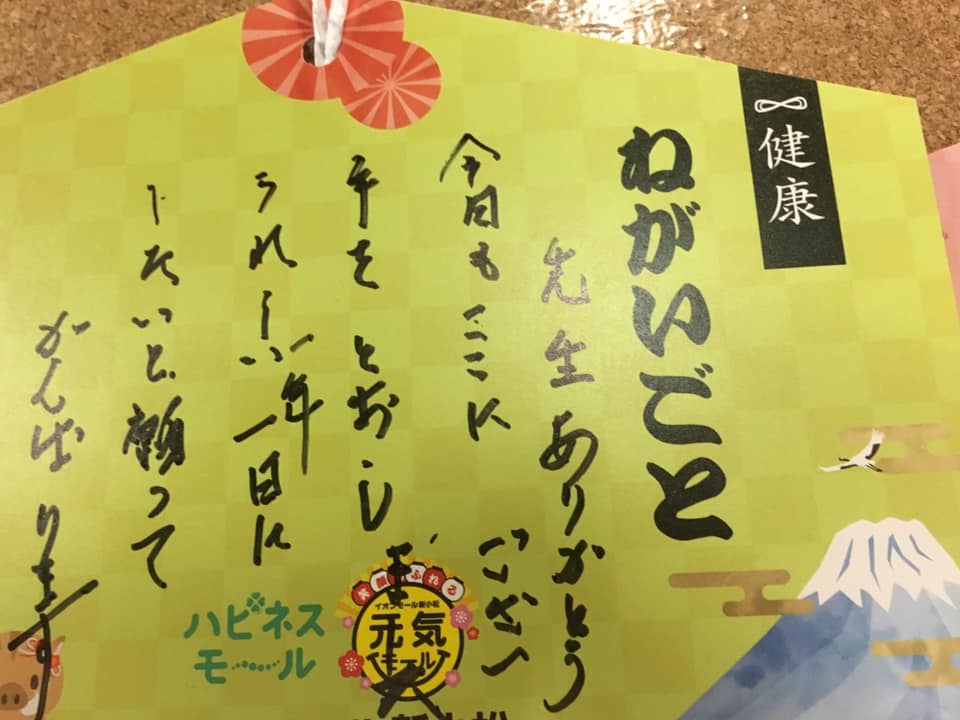 健康
ねがいごと
先生ありがとう
ござい
今日もここに
手をとおし
うれしい年一日に
したいと願って
がんばります
笑顔あふれる
イオンモール新小松
元気
モール
ハピネス
モール